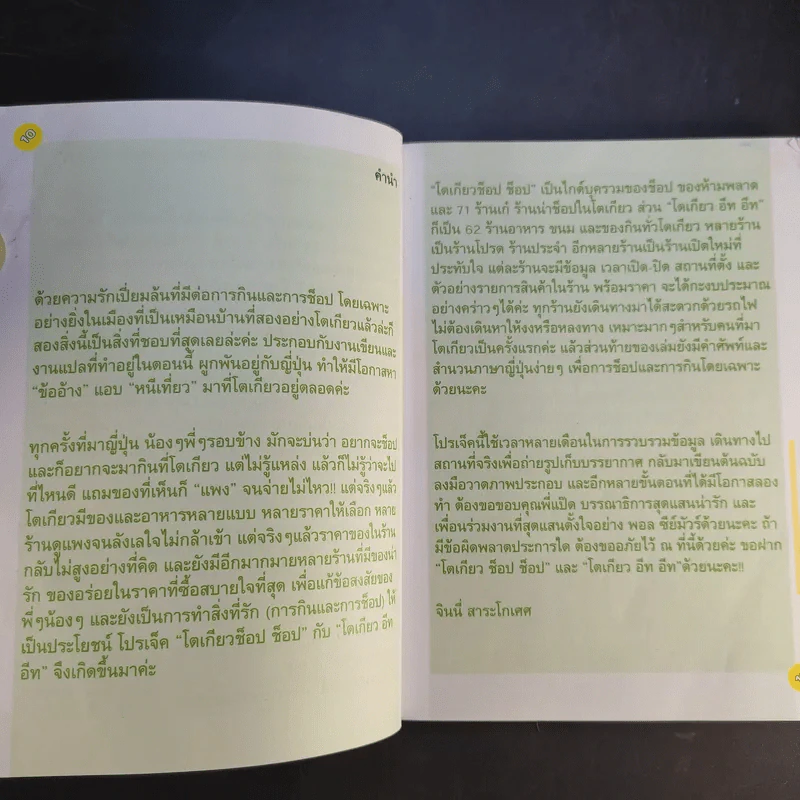 10
คำนำ
ด้วยความรักเปี่ยมล้นที่มีต่อการกินและการช็อป โดยเฉพาะ
อย่างยิ่งในเมืองที่เป็นเหมือนบ้านที่สองอย่างโตเกียวแล้วล่ะก็
สองสิ่งนี้เป็นสิ่งที่ชอบที่สุดเลยล่ะค่ะ ประกอบกับงานเขียนและ
งานแปลที่ทำอยู่ในตอนนี้ ผูกพันอยู่กับญี่ปุ่น ทำให้มีโอกาสหา
“ข้ออ้าง” แอบ “หนีเที่ยว” มาที่โตเกียวอยู่ตลอดค่ะ
ทุกครั้งที่มาญี่ปุ่น น้องๆพี่ๆรอบข้าง มักจะบ่นว่า อยากจะช็อป
และก็อยากจะมากินที่โตเกียว แต่ไม่รู้แหล่ง แล้วก็ไม่รู้ว่าจะไป
ที่ไหนดี แถมของที่เห็นก็ “แพง” จนจ่ายไม่ไหว!! แต่จริงๆแล้ว
โตเกียวมีของและอาหารหลายแบบ หลายราคาให้เลือก หลาย
ร้านดูแพงจนลังเลใจไม่กล้าเข้า แต่จริงๆแล้วราคาของในร้าน
กลับไม่สูงอย่างที่คิด และยังมีอีกมากมายหลายร้านที่มีของน่า
รัก ของอร่อยในราคาที่ซื้อสบายใจที่สุด เพื่อแก้ข้อสงสัยของ
พี่ๆน้องๆ และยังเป็นการทำสิ่งที่รัก (การกินและการช็อป) ให้
เป็นประโยชน์ โปรเจ็ค “โตเกียวช็อป ช็อป” กับ “โตเกียว อีท
อีท” จึงเกิดขึ้นมาค่ะ
“โตเกียวช็อป ช็อป” เป็นไกด์บุครวมของช็อป ของห้ามพลาด
และ 71 ร้านเก๋ ร้านน่าช็อปในโตเกียว ส่วน “โตเกียว อีท อีท”
ก็เป็น 62 ร้านอาหาร ขนม และของกินทั่วโตเกียว หลายร้าน
เป็นร้านโปรด ร้านประจำ อีกหลายร้านเป็นร้านเปิดใหม่ที่
ประทับใจ แต่ละร้านจะมีข้อมูล เวลาเปิด-ปิด สถานที่ตั้ง และ
ตัวอย่างรายการสินค้าในร้าน พร้อมราคา จะได้กะงบประมาณ
อย่างคร่าวๆได้ค่ะ ทุกร้านยังเดินทางมาได้สะดวกด้วยรถไฟ
ไม่ต้องเดินหาให้งงหรือหลงทาง เหมาะมากๆสำหรับคนที่มา
โตเกียวเป็นครั้งแรกค่ะ แล้วส่วนท้ายของเล่มยังมีคำศัพท์และ
สำนวนภาษาญี่ปุ่นง่ายๆ เพื่อการช็อปและการกินโดยเฉพาะ
ด้วยนะคะ
โปรเจ็คนี้ใช้เวลาหลายเดือนในการรวบรวมข้อมูล เดินทางไป
สถานที่จริงเพื่อถ่ายรูปเก็บบรรยากาศ กลับมาเขียนต้นฉบับ
ลงมือวาดภาพประกอบ และอีกหลายขั้นตอนที่ได้มีโอกาสลอง
ทำ ต้องขอขอบคุณพี่แป๊ด บรรณาธิการสุดแสนน่ารัก และ
เพื่อนร่วมงานที่สุดแสนตั้งใจอย่าง พอล ซีย์มัวร์ด้วยนะคะ ถ้า
มีข้อผิดพลาดประการใด ต้องขออภัยไว้ ณ ที่นี้ด้วยค่ะ ขอฝาก
“โตเกียว ช็อป ช็อป” และ “โตเกียว อีท อีท”ด้วยนะคะ!!
จินนี่ สาระโกเศศ